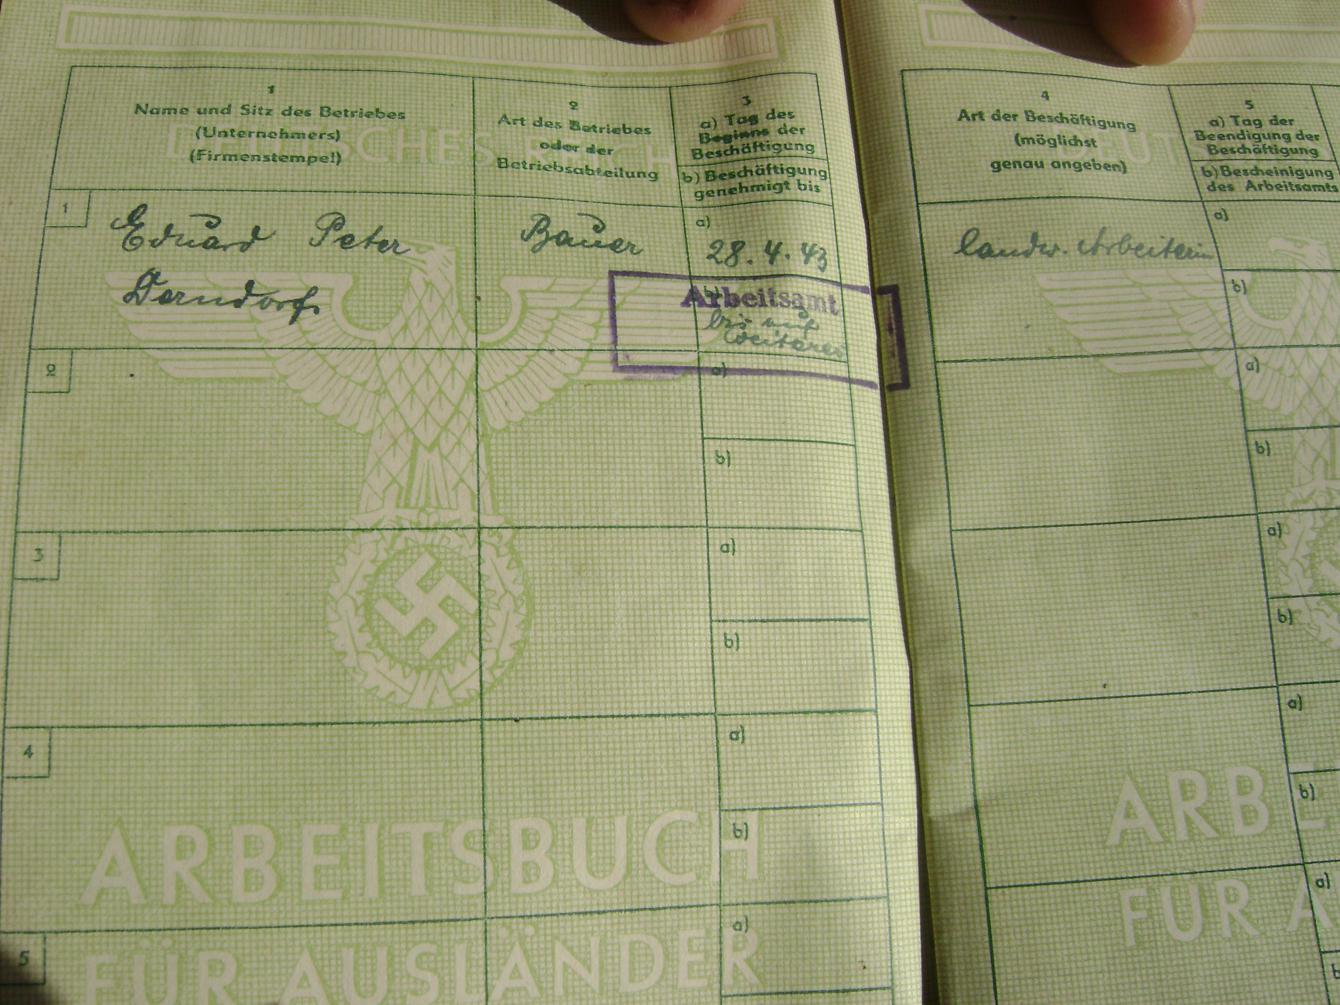 DEUTSCHES REICH
1
Name und Sitz des Betriebes
(Unternehmers)
(Firmenstempel)
2
Art des Betriebes
oder der
Betriebsabteilung
3
a) Tag des
Beginns der
Beschäftigung
b) Beschäftigung
genehmigt bis
1
Eduard Peter
Derndorf
Bauer
a)
28.4.43
b)
Arbeitsamt
bis auf
Weiteres
2
a)
b)
3
a)
b)
4
a)
b)
5
a)
ARBEITSBUCH
FÜR AUSLÄNDER
4
Art der Beschäftigung
(möglichst
genau angeben)
5
a) Tag der
Beendigung der
Beschäftigung
b) Bescheinigung
des Arbeitsamts
landw. Arbeiterin
a)
b)
a)
b)
a)
b)
a)
b)
a)
b)
ARBE
FÜR A